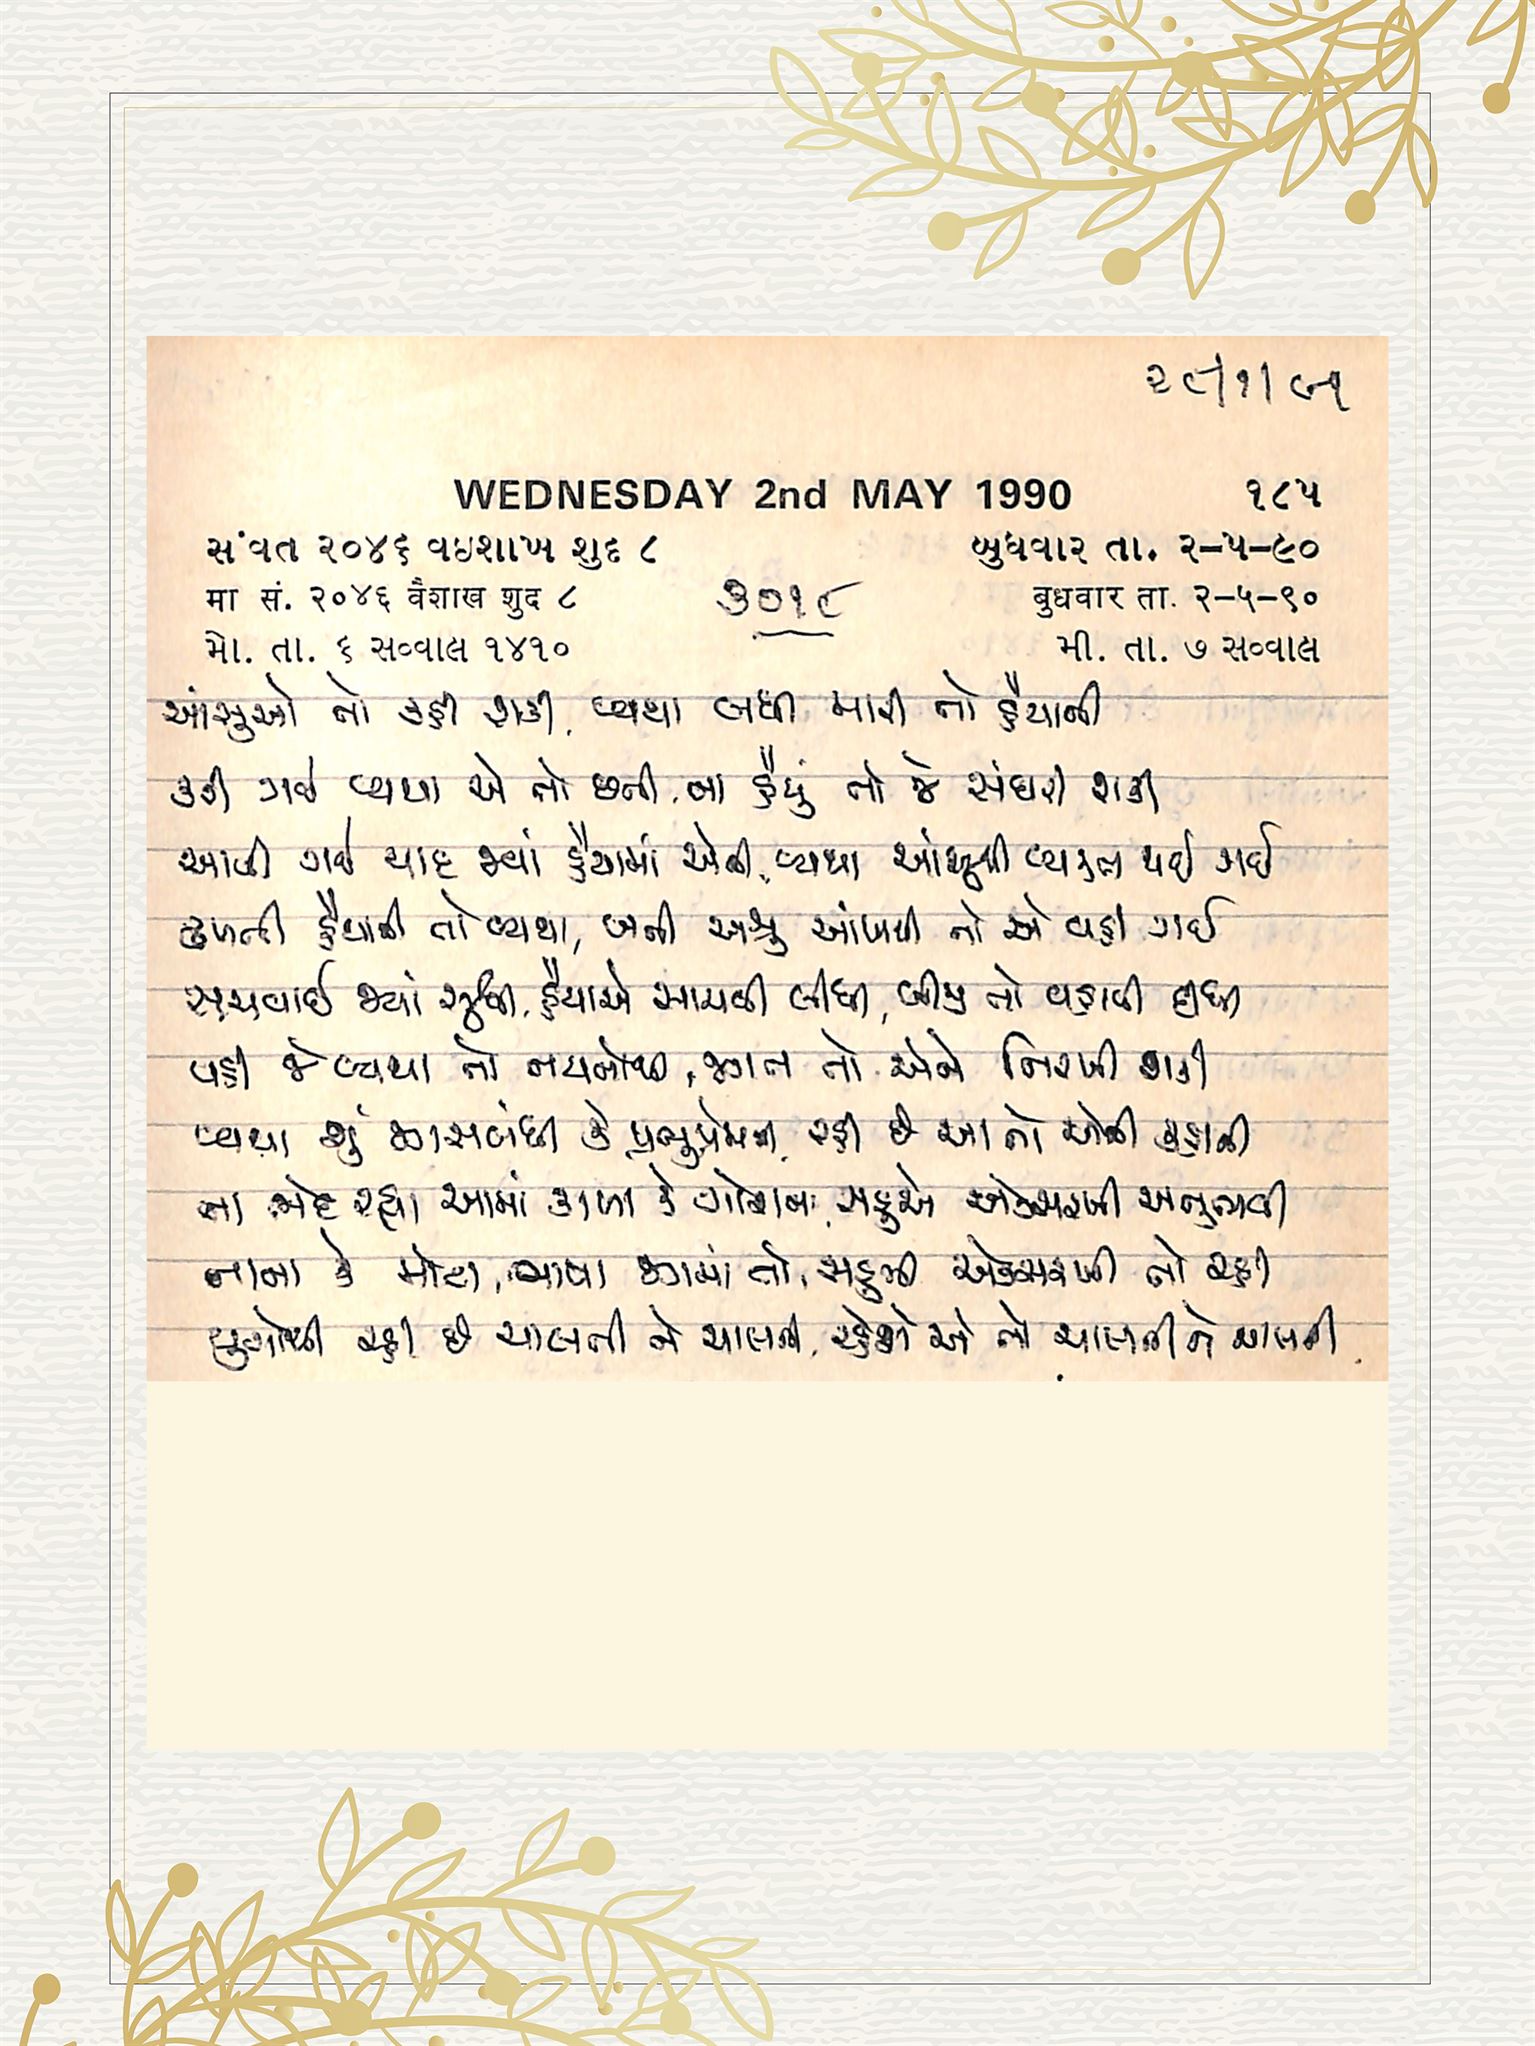 ૨૯/૧/૯૧
WEDNESDAY 2nd MAY 1990 ૧૮૫
સંવત ૨૦૪૬ વઇશાખ શુદ ૮ બુધવાર તા. ૨-૫-૯૦
मा सं. २०४६ वैशाख शुद ८ बुधवार ता. २-५-९०
મો. તા. ૬ સવ્વાલ ૧૪૧૦ મી. તા. ૭ સવ્વાલ
૩૦૧૯
આંસુઓ તો કહી શકી, વ્યથા બધી મારી તો હૈયાની
કહી ગઈ વ્યથા એ તો છની, ના હૈયું તો જે સંઘરી શકી
આવી ગઈ યાદ જ્યાં હૈયામાં એની, વ્યથા આંસુથી વ્યક્ત થઈ ગઈ
છૂપી હૈયાની તો વ્યથા, બની અશ્રુ આંખથી તો એ વહી ગઈ
સચવાઈ જ્યાં સુધી, હૈયાએ સાચવી લીધી, બીજી તો વહાવી દીધી
વહી જે વ્યથા તો નયનોથી, જગત તો એને નિરખી શકી
વ્યથા શું જગસંબંધી કે પ્રભુપ્રેમની, રહી છે આ તો એની કહાની
ના ભેદ રહ્યા આમાં કાળા કે ગોરાના, સહુએ એકસરખી અનુભવી
નાના કે મોટા, ભાષા જગમાં તો, સહુની એકસરખી તો રહી
યુગોથી રહી છે ચાલતી ને ચાલતી, રહેશે એ તો ચાલતી ને ચાલતી